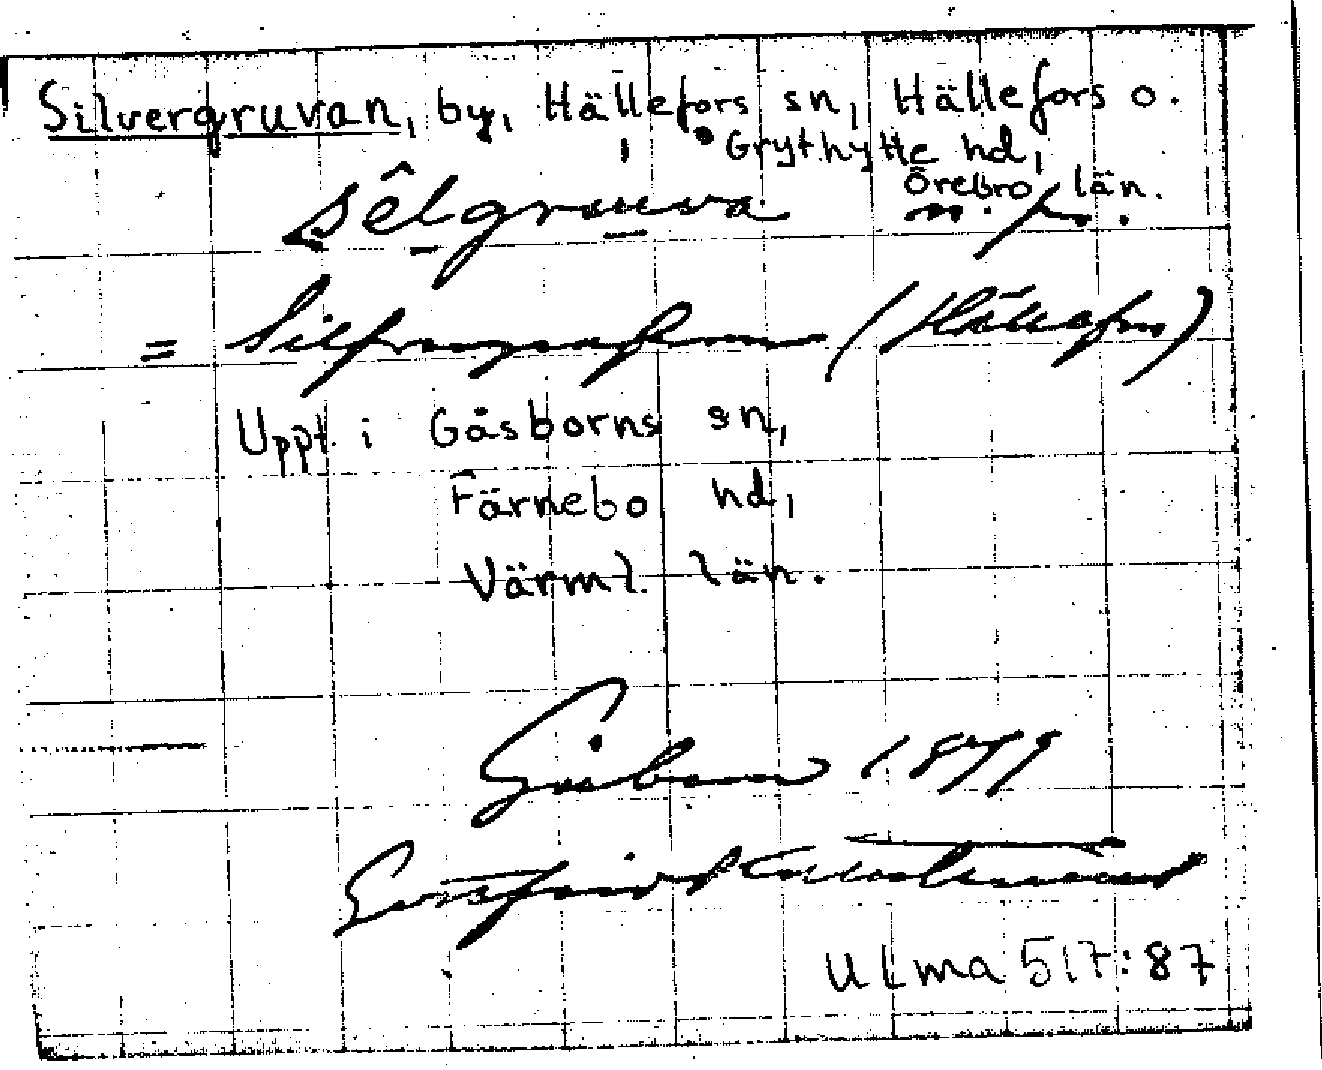 Silvergruvan, by, Hällefors sn, Hällefors o.
Grythytte hd,
Örebro län.
sêlgruuva
= Silfvergrufvan (Hällefors)
Uppt. i Gåsborns sn,
Färnebo hd,
Värml. län.
Gåsborn 1879
Gottfrid Kallstenius
ULMA 517:87